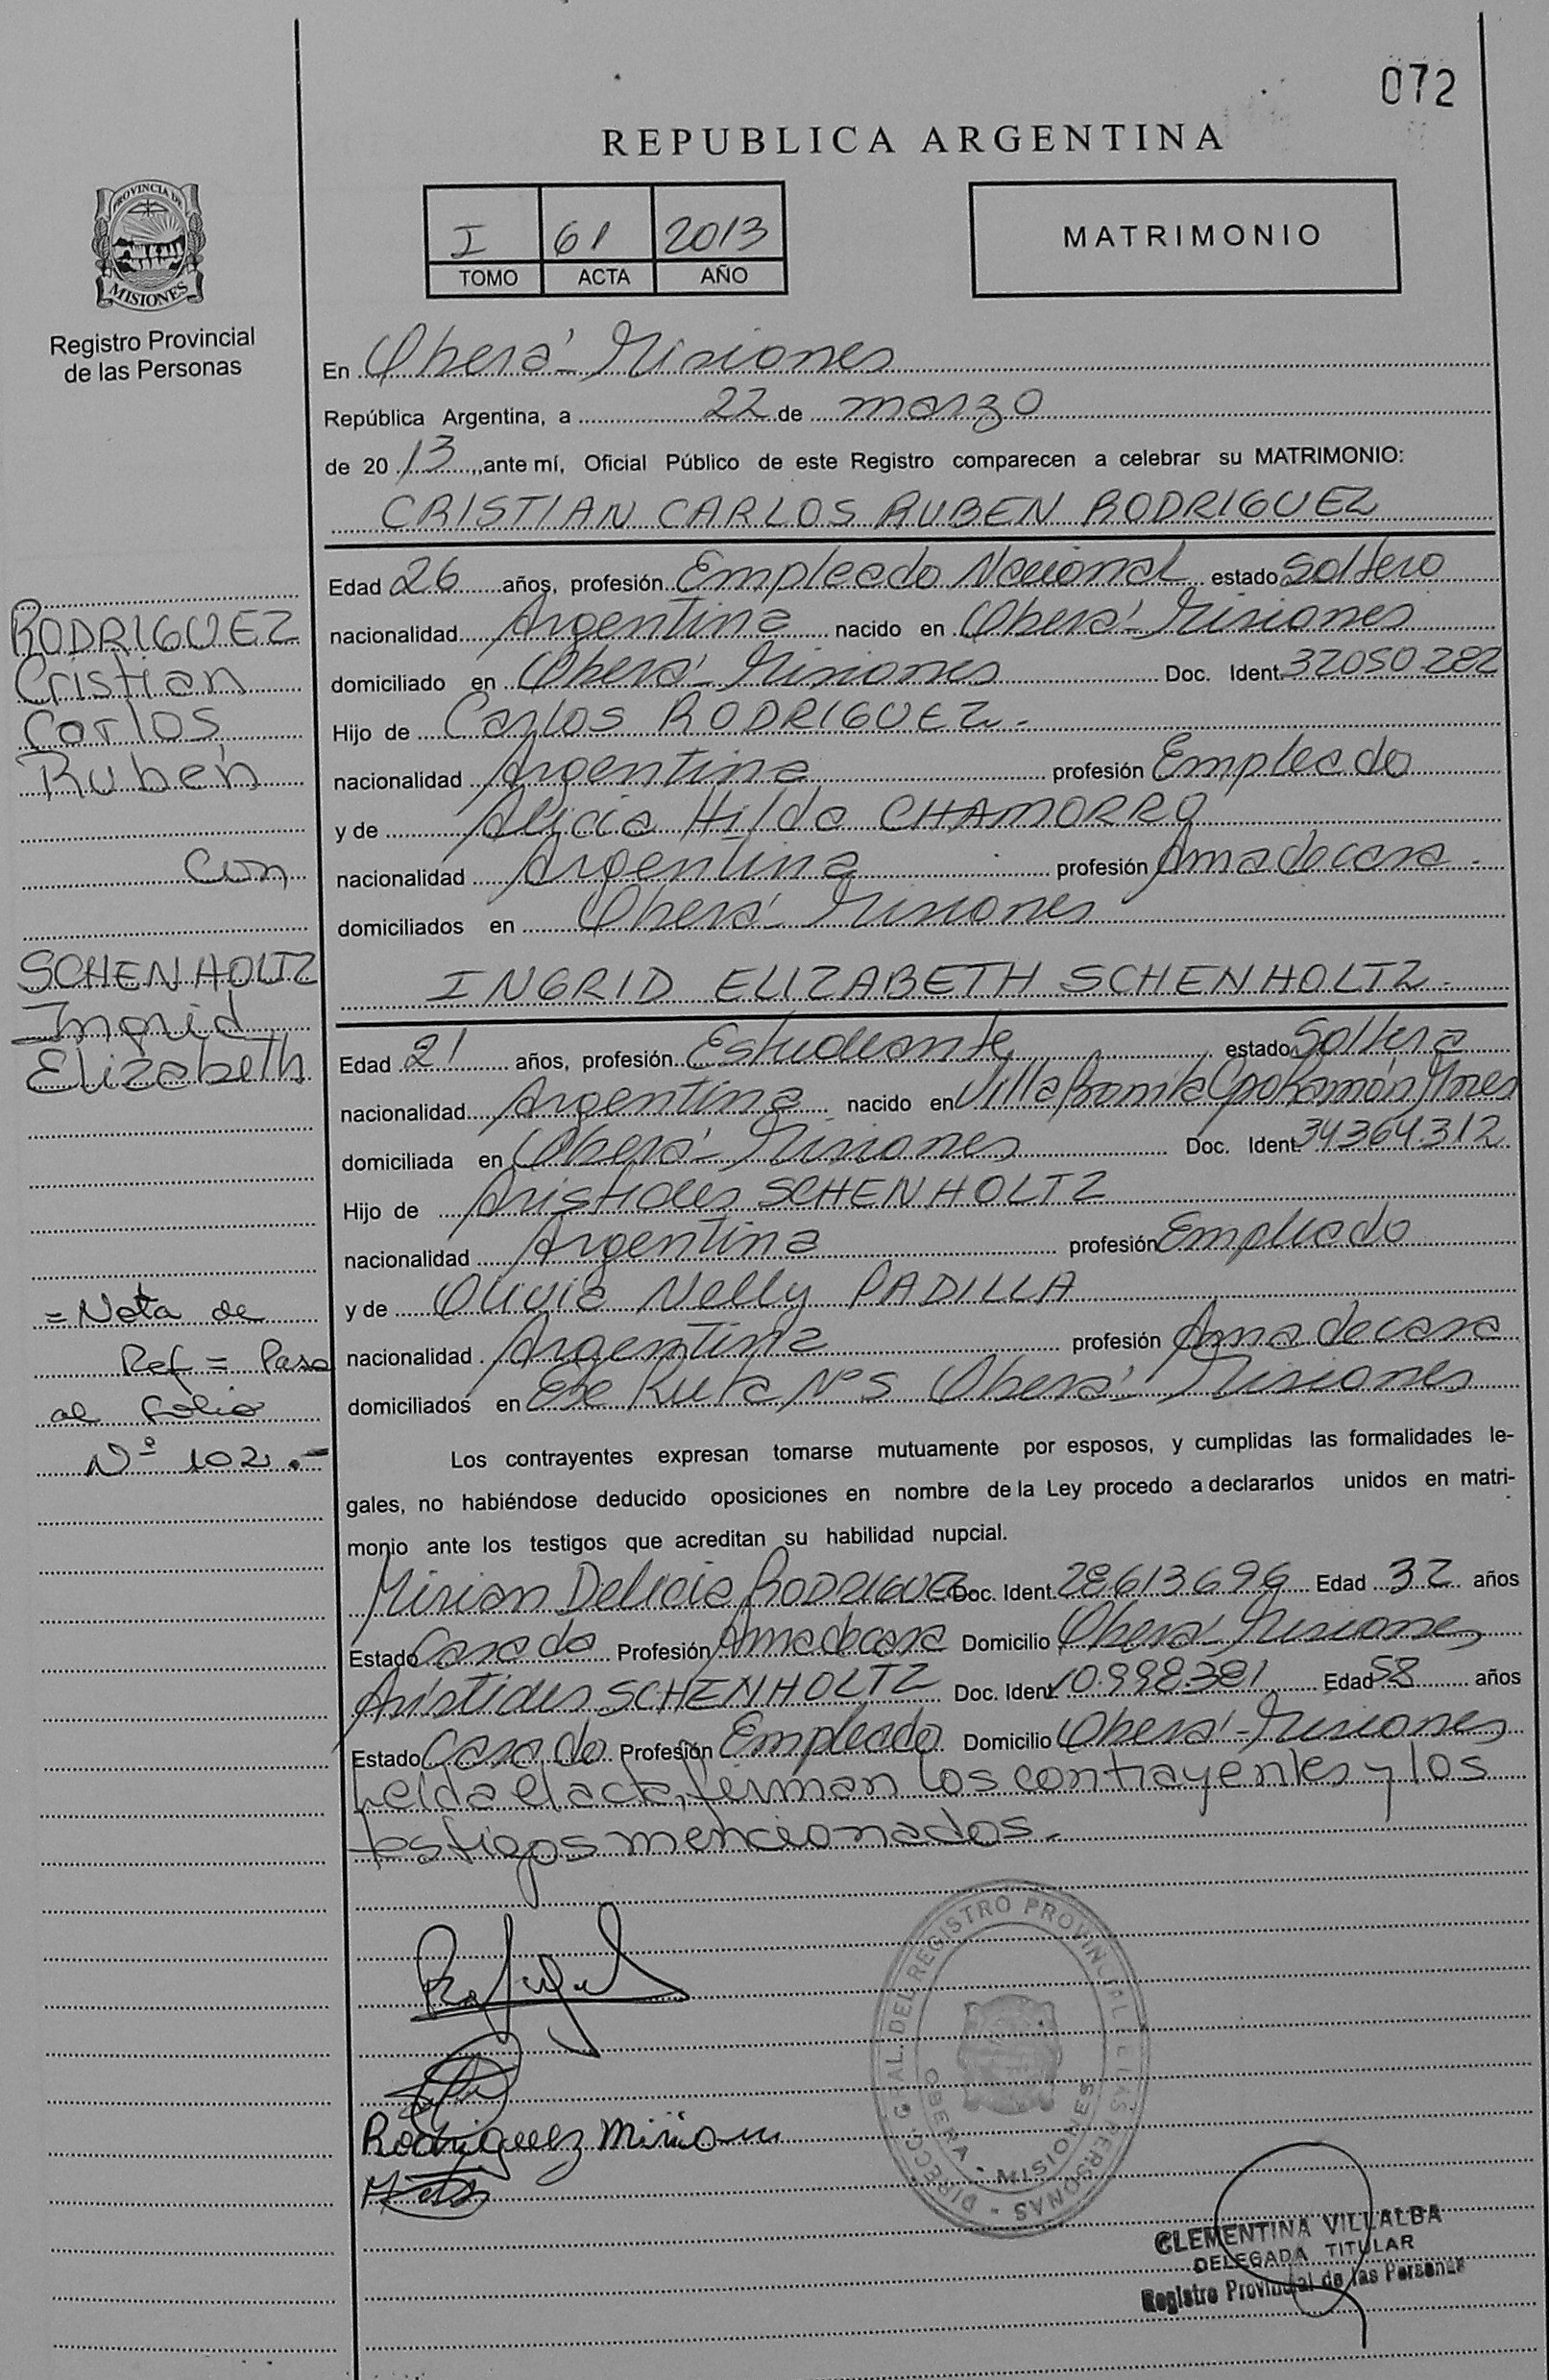 072
REPUBLICA ARGENTINA
I 61 2013
TOMO ACTA AÑO
MATRIMONIO
PROVINCIA DE
MISIONES
Registro Provincial
de las Personas
En Oberá - Misiones
República Argentina, a 22 de marzo
de 20 13, ante mí, Oficial Público de este Registro comparecen a celebrar su MATRIMONIO:
CRISTIAN CARLOS RUBEN RODRIGUEZ
Edad 26 años, profesión Empleado Nacional estado Soltero
nacionalidad Argentina nacido en Oberá - Misiones
domiciliado en Oberá - Misiones Doc. Ident. 32050.282
Hijo de Carlos RODRIGUEZ.-
nacionalidad Argentina profesión Empleado
y de Alicia Hilda CHAMORRO
nacionalidad Argentina profesión Ama de casa.
domiciliados en Oberá - Misiones
INGRID ELIZABETH SCHENHOLTZ.
Edad 21 años, profesión Estudiante estado Soltera
nacionalidad Argentina nacido en Villa Bonita
domiciliada en Oberá - Misiones Doc. Ident. 34364.312
Hijo de Aristides SCHENHOLTZ
nacionalidad Argentina profesión Empleado
y de Olivia Nelly PADILLA
nacionalidad Argentina profesión Ama de casa
domiciliados en Ruta Nº5 Oberá - Misiones
Los contrayentes expresan tomarse mutuamente por esposos, y cumplidas las formalidades le-
gales, no habiéndose deducido oposiciones en nombre de la Ley procedo a declararlos unidos en matri-
monio ante los testigos que acreditan su habilidad nupcial.
Mirian Delicia RODRIGUEZ Doc. Ident. 28.613.696 Edad 32 años
Estado Casada Profesión Ama de casa Domicilio Oberá - Misiones
Arístides SCHENHOLTZ Doc. Ident. 10.998.381 Edad 58 años
Estado Casado Profesión Empleado Domicilio Oberá - Misiones
Leída el acta, firman los contrayentes y los
testigos mencionados.-
RODRIGUEZ
Cristian
Carlos
Rubén
Con
SCHENHOLTZ
Ingrid
Elizabeth
= Nota de
Ref = Pasa
al folio
Nº 102.-
Rodriguez Mirian
DIRECC. GRAL. DEL REGISTRO PROVINCIAL DE LAS PERSONAS
OBERA - MISIONES
CLEMENTINA VILLALBA
DELEGADA TITULAR
Registro Provincial de las Personas